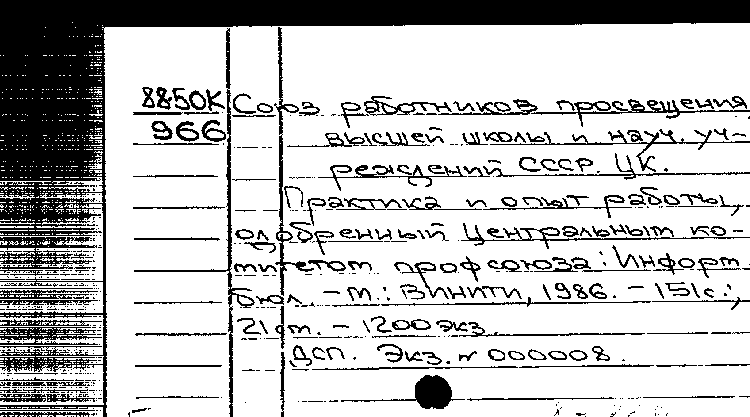 8850К Союз работников просвещения,
966 высшей школы и науч. уч-
реждений СССР. ЦК.
Практика и опыт работы,
одобренный Центральным ко-
митетом профсоюза: Информ.
бюл. - М.: ВИНИТИ, 1986. - 151с.;
21 см. - 1200 экз.
ДСП. Экз. № 000008.